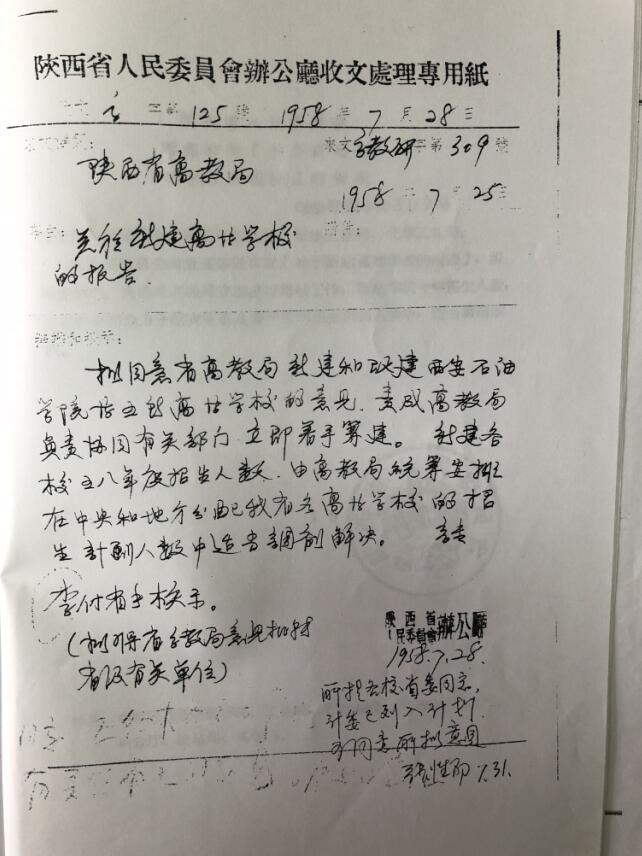 陝西省人民委員會辦公廳收文處理專用紙
字第 125 號 1958 年 7 月 28 日
來文 字第 309 號
陕西省高教局
1958 年 7 月 25 日
关於新建高等学校
的报告.
拟同意省高教局新建和改建西安石油
学院等五所高等学校的意见,责成高教局
负责协同有关部门立即着手筹建。新建各
校五八年度招生人数,由高教局统筹安排
在中央和地方分配我省各高等学校的招
生计劃人数中适当調剂解决。
李付省长核示。
陝西省
人民委員會辦公廳
1958.7.28.
(拟将省高教局意见批转
省级有关单位)
所提各校省委同意,
计委已列入计划.
可同意所拟意见
7.31.